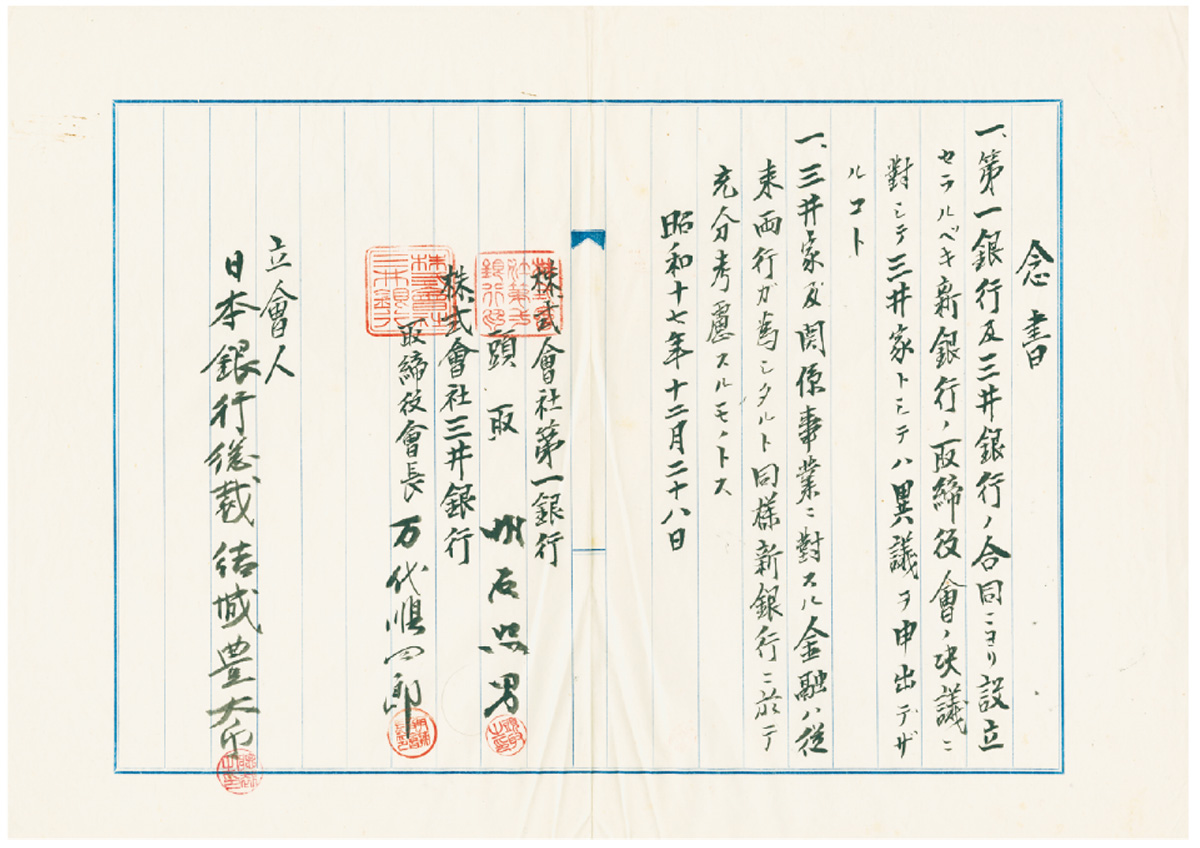 念書
一、第一銀行及三井銀行ノ合同ニヨリ設立
セラルベキ新銀行ノ取締役會ノ決議ニ
對シテ三井家トシテハ異議ヲ申出デザ
ルコト
一、三井家及関係事業ニ對スル金融ハ従
来両行ガ為シタルト同様新銀行ニ於テ
充分考慮スルモノトス
昭和十七年十二月二十八日
株式會社第一銀行
頭取 明石照男
株式會社三井銀行
取締役會長 万代順四郎
立會人
日本銀行総裁結城豊太郎